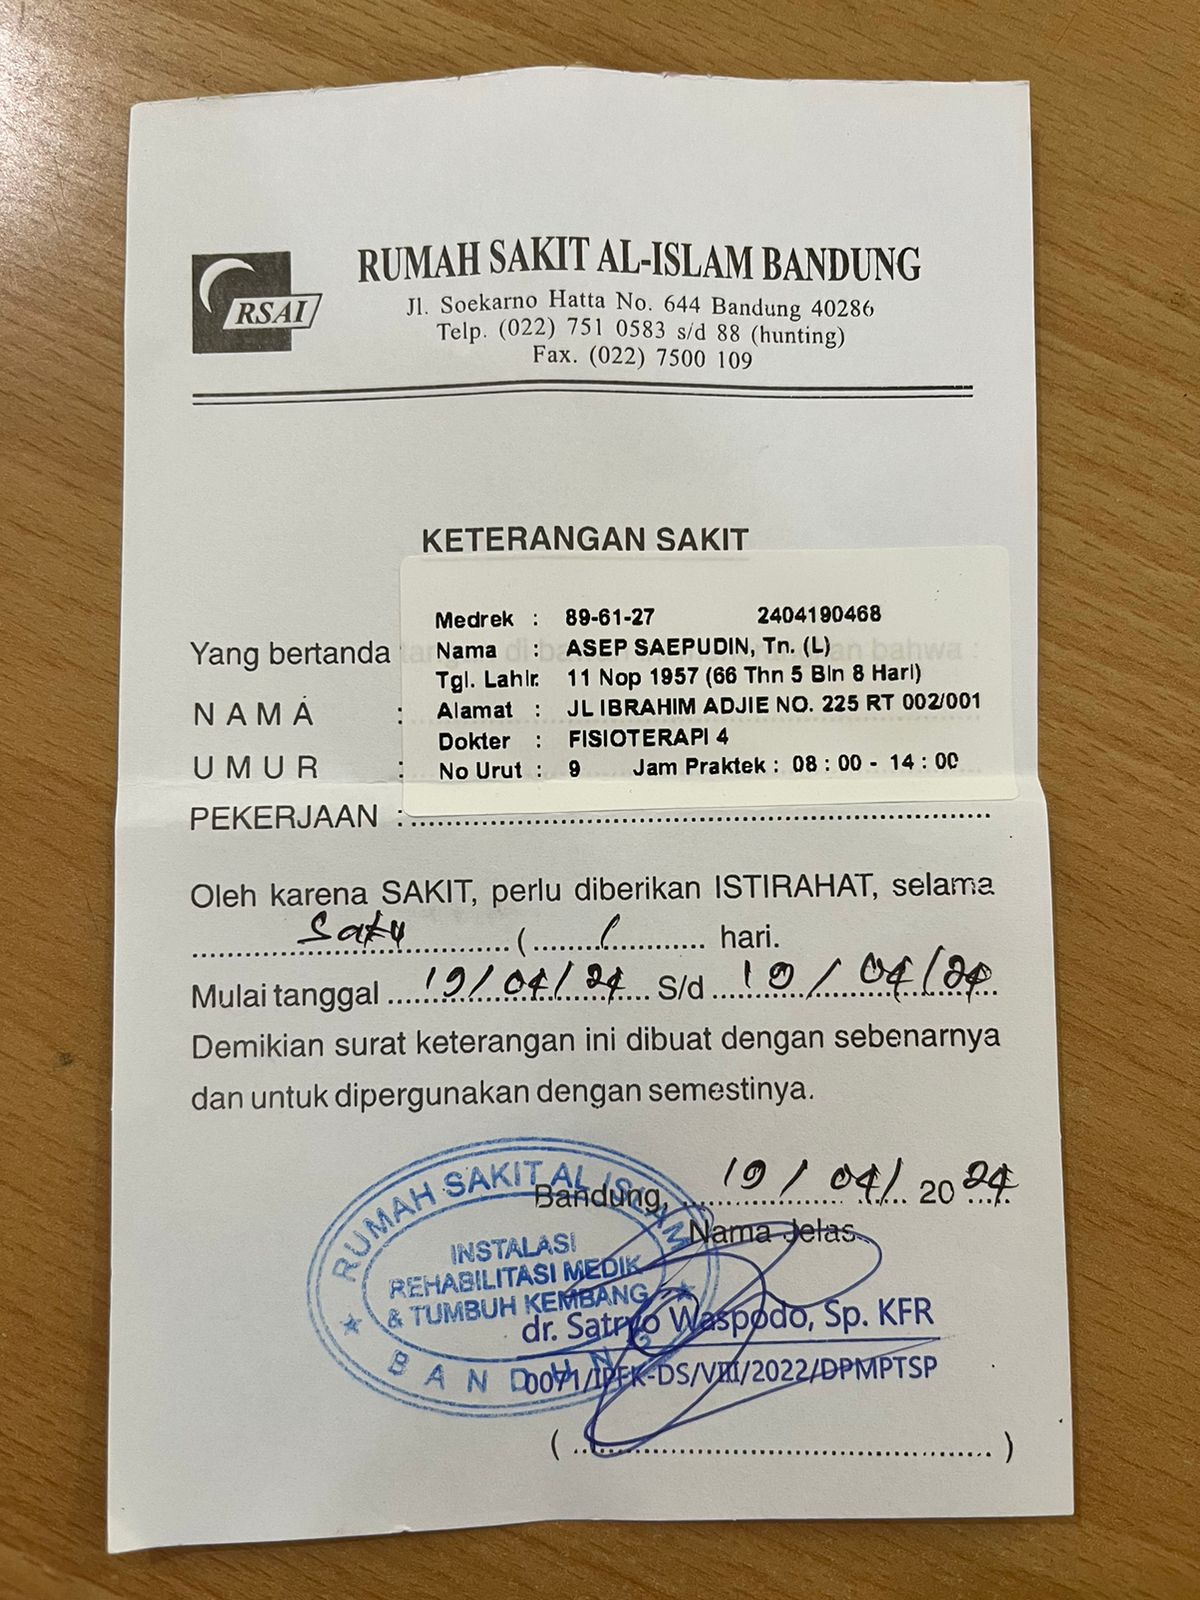 RSAI
RUMAH SAKIT AL-ISLAM BANDUNG
Jl. Soekarno Hatta No. 644 Bandung 40286
Telp. (022) 751 0583 s/d 88 (hunting)
Fax. (022) 7500 109
KETERANGAN SAKIT
Medrek : 89-61-27 2404190468
Yang bertanda tangan di bawah ini menerangkan bahwa :
Nama : ASEP SAEPUDIN, Tn. (L)
Tgl. Lahir: 11 Nop 1957 (66 Thn 5 Bln 8 Hari)
NAMA :
Alamat : JL IBRAHIM ADJIE NO. 225 RT 002/001
Dokter : FISIOTERAPI 4
UMUR :
No Urut : 9 Jam Praktek : 08 : 00 - 14 : 00
PEKERJAAN :
Oleh karena SAKIT, perlu diberikan ISTIRAHAT, selama
Satu ( 1 hari.
Mulai tanggal 19/04/24 S/d 19/04/24
Demikian surat keterangan ini dibuat dengan sebenarnya
dan untuk dipergunakan dengan semestinya.
Bandung, 19/04/ 2024
Nama Jelas
RUMAH SAKIT AL ISLAM
INSTALASI
REHABILITASI MEDIK
& TUMBUH KEMBANG
BANDUNG
dr. Satryo Waspodo, Sp. KFR
0071/IPFK-DS/VIII/2022/DPMPTSP
( )